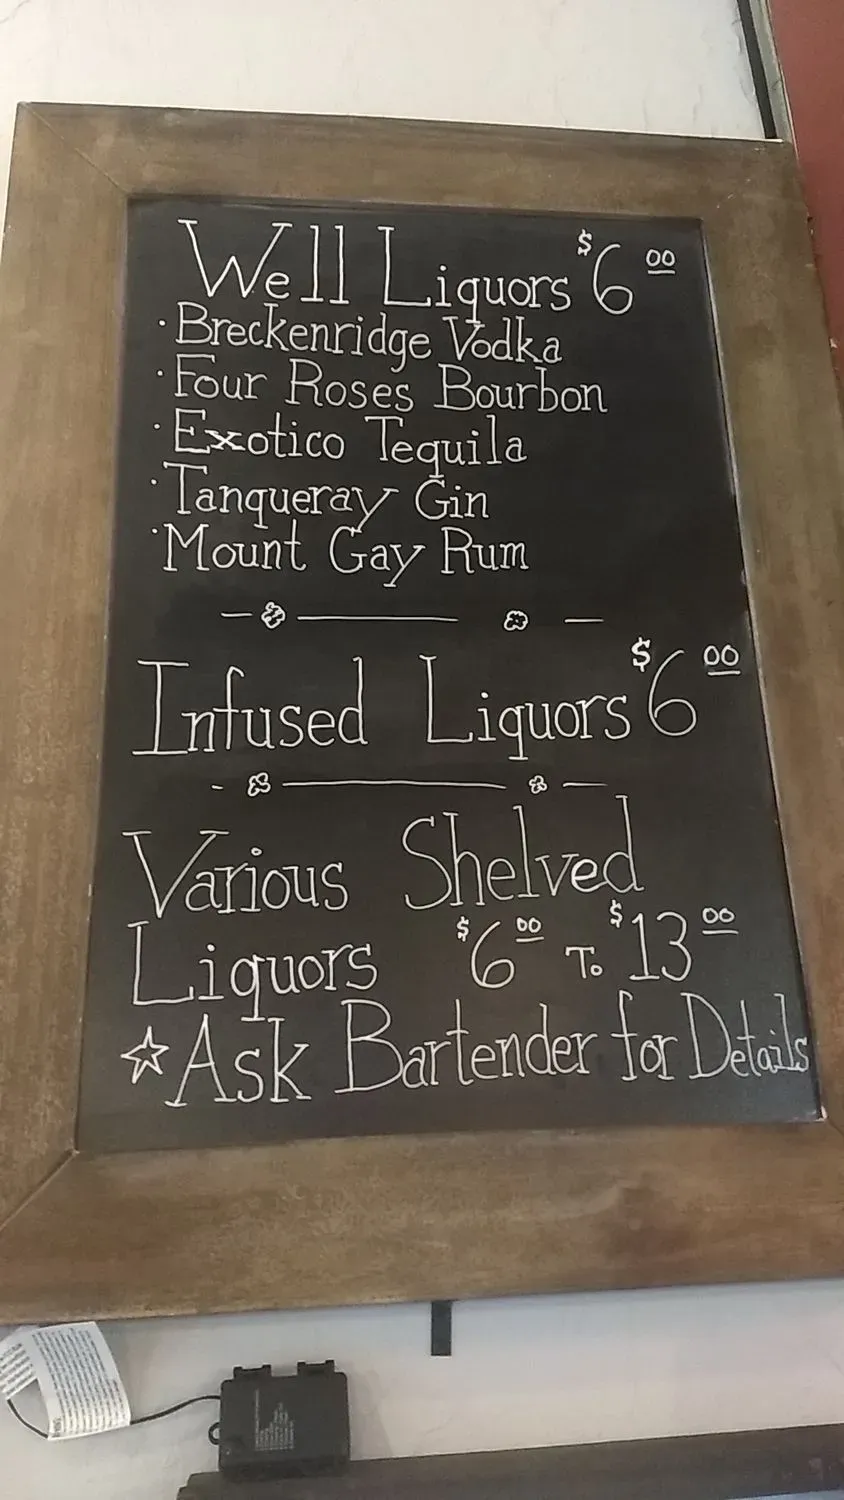 Well Liquors $6 00
· Breckenridge Vodka
· Four Roses Bourbon
· Exotico Tequila
· Tanqueray Gin
· Mount Gay Rum
Infused Liquors $6 00
Various Shelved
Liquors $6 00 To $13 00
☆ Ask Bartender for Details